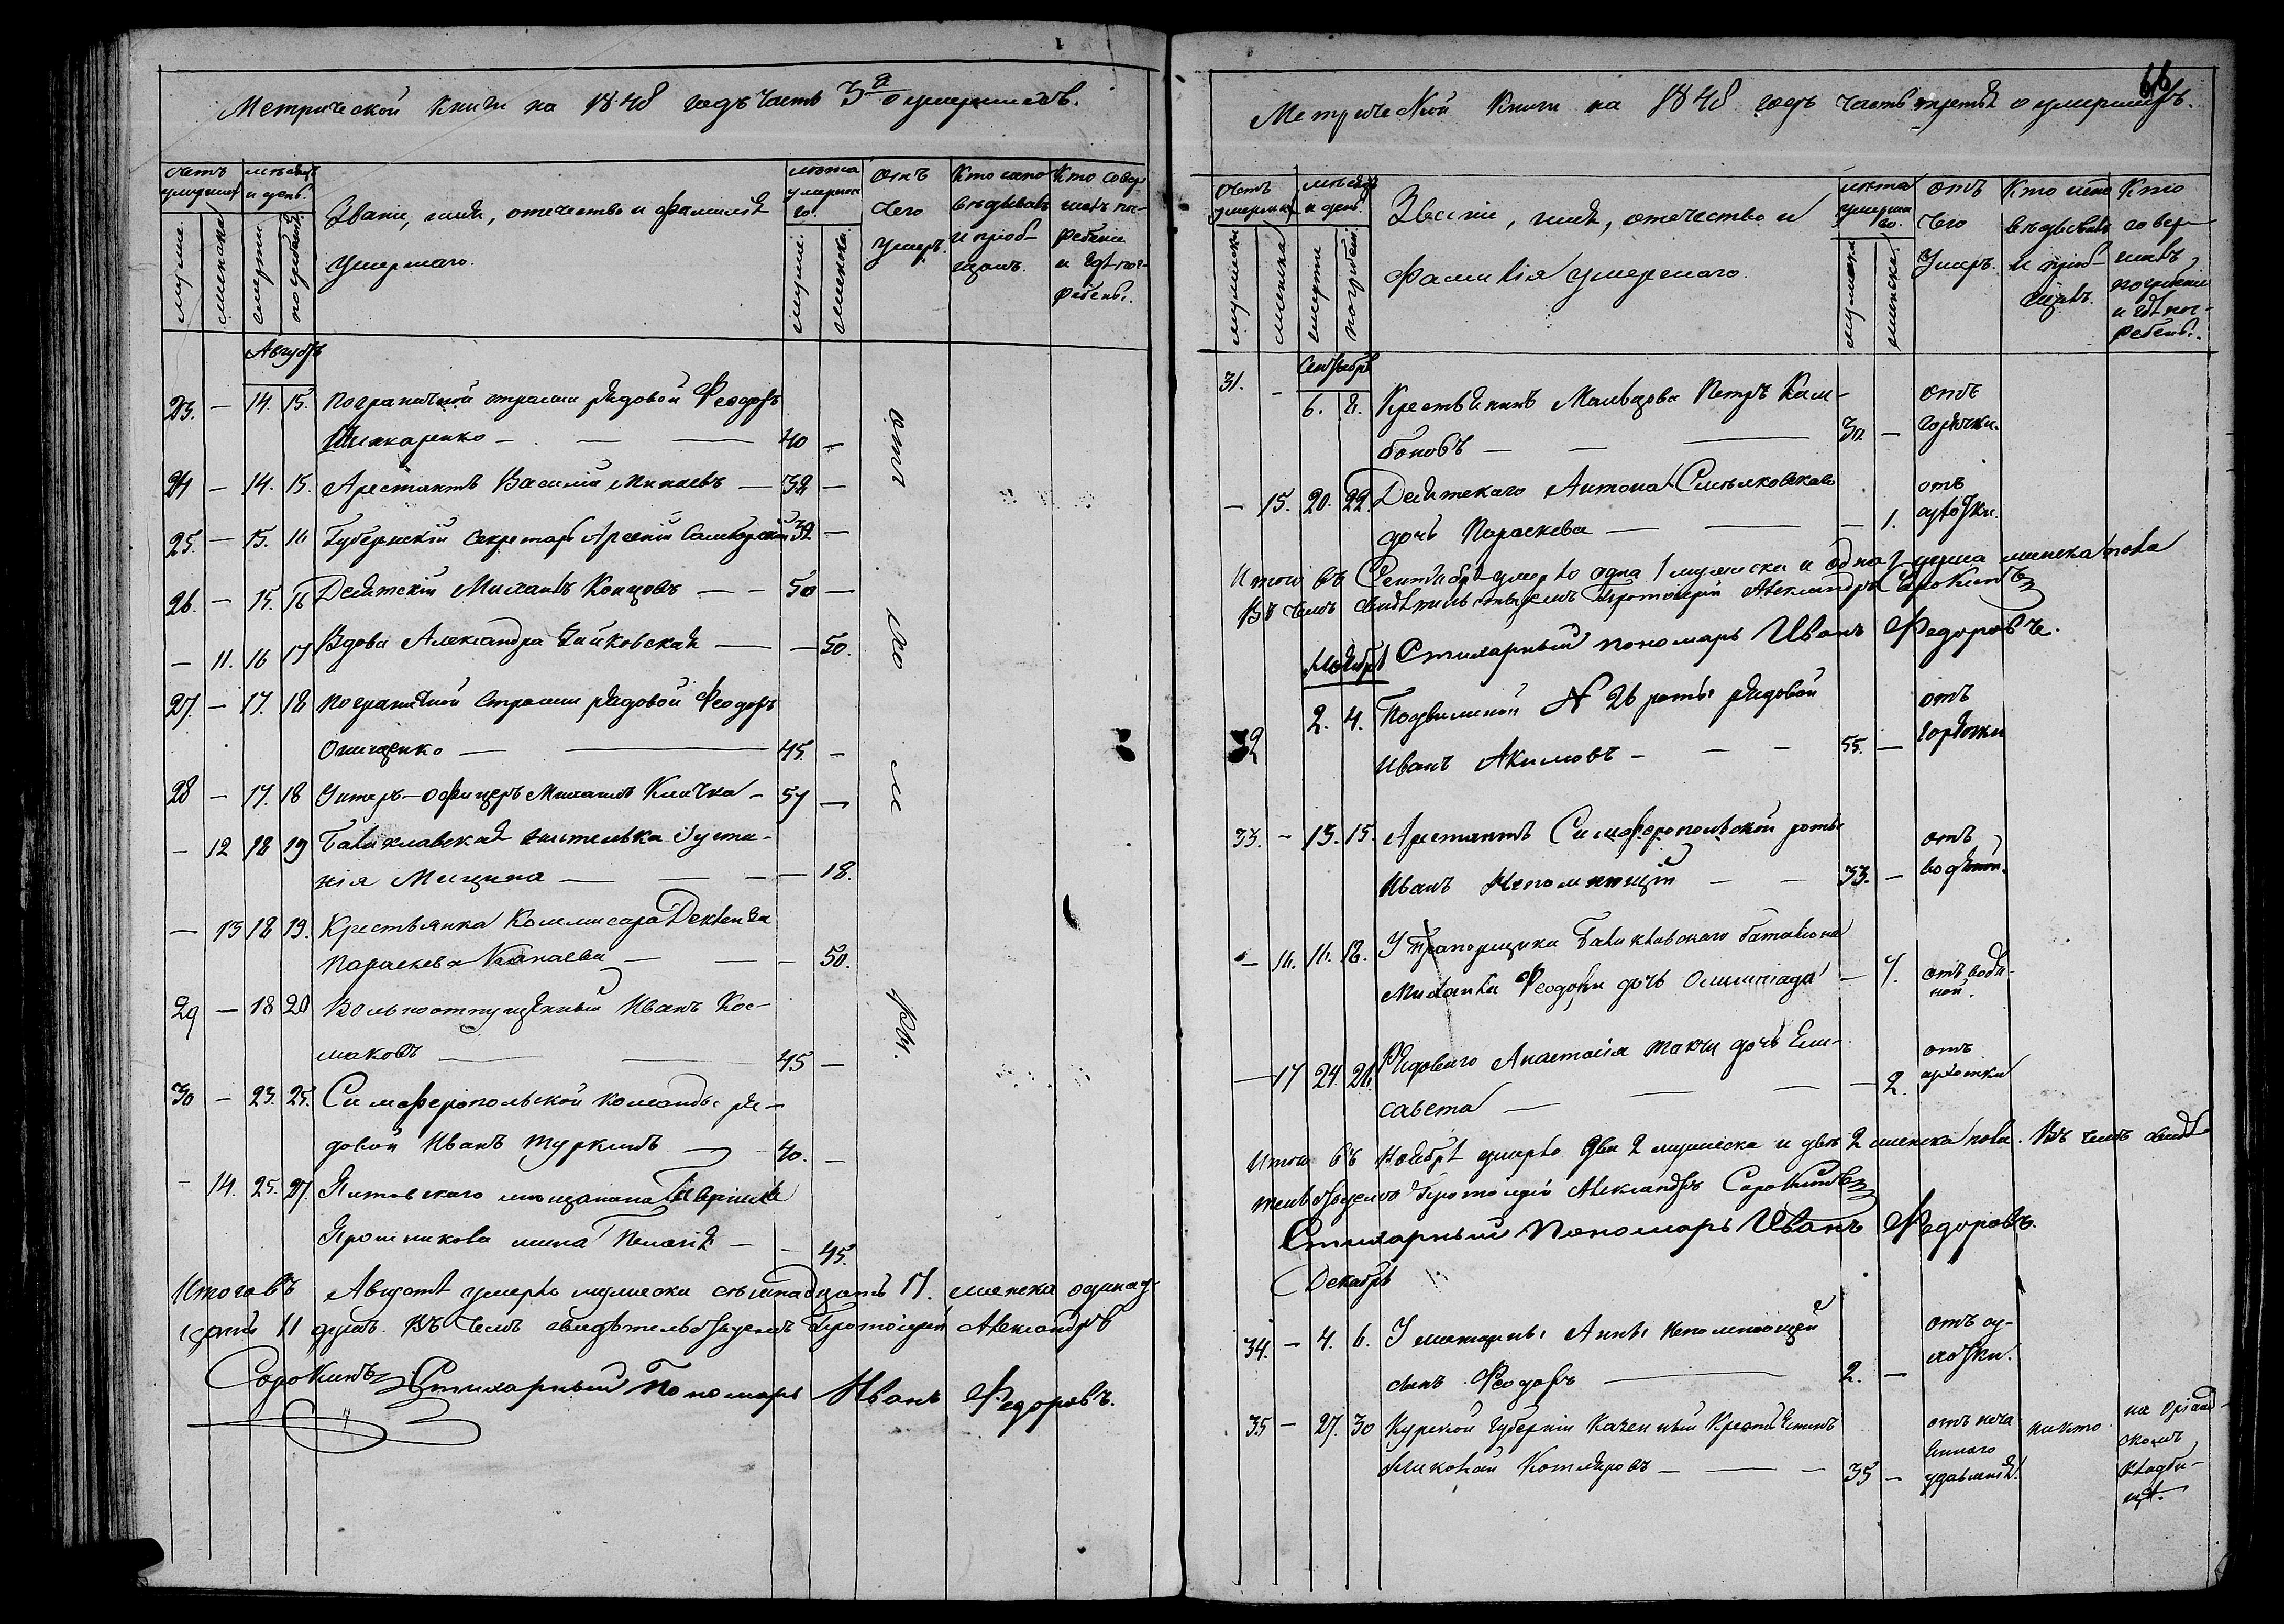 Метрической книги на 1848 годъ часть 3я о умершихъ.
счетъ умершихъ
мѣсяцъ и день.
Званіе, имя, отечество и фамилія
умершаго.
лѣта умершаго.
отъ чего умеръ.
Кто исповѣдывалъ и пріобщалъ.
Кто совершалъ погребеніе и гдѣ погребены.
мужеска
женска
смерти
погребенія
мужеск.
женска.
Августъ
23. — 14. 15. Пограничной стражи рядовой Феодоръ
Шинкаренко — 40 —
24 — 14. 15. Арестантъ Василій Минаевъ — 32 —
25. — 15. 16 Губернскій Секретарь Арсеній 32 —
26. — 15. 16 Десятскій Михаилъ Концовъ — 50 —
— 11. 16 17 Вдова Александра Чайковская — — 50.
27. — 17. 18 Пограничной Стражи рядовой Феодоръ
Онищенко — 45. —
28 — 17. 18 Унтеръ-офицеръ Михаилъ Кличка — 57 —
— 12 18 19 Балаклавская жителька Іусти-
нія Мицина — — 18.
— 13 18 19. Крестьянка Коммисара
Параскева Канаева — — 50.
29 — 18 20 Вольноотпущенный Иванъ Кос-
маковъ — 45 —
30 — 23. 25. Симферопольской команды ря-
довой Иванъ Туркинъ — 40. —
— 14. 25. 27. мѣщанина Гавріила
Прошникова жена Пелагія — — 45.
отъ холеры.
Итого въ Августѣ умерло мужеска семнадцать 17. женска одинад-
цать 11 душъ. Въ чемъ свидѣтельствуемъ Протоіерей Александръ
Сорокинъ Стихарный Пономарь Иванъ Федоровъ.
66
Метрической книги на 1848 годъ часть третья о умершихъ.
счетъ умершихъ
мѣсяцъ и день.
Званіе, имя, отечество и
фамилія умершаго.
лѣта умершаго.
отъ чего умеръ.
Кто исповѣдывалъ и пріобщалъ.
Кто совершалъ погребеніе и гдѣ погребены.
мужеска
женска
смерти
погребен.
мужеска
женска.
Сентябрь
31. — 6. 8. Крестьянинъ Мальцова Петръ Кам-
боновъ — 30. — отъ горячки.
— 15. 20. 22. Десятскаго Антона Смѣлковскаго
дочь Параскева — — 1. отъ сухотки.
Итого въ Сентябрѣ умерло одна 1 мужеска и одна 1 душа женска пола
Въ чемъ свидѣтельствуемъ Протоіерей Александръ Сорокинъ
Стихарный пономарь Иванъ Федоровъ.
Ноябрь
32 2. 4. Подвижной № 26 роты рядовой
Иванъ Акимовъ — 55. — отъ горячки
33. — 13. 15. Арестантъ Симферопольской роты
Иванъ Непомнящій — 33. — отъ водяной.
— 16. 16. 18. У Прапорщика Балаклавскаго баталіона
Михаила Феодори дочь Олимпіада — 7. отъ водя-
ной.
— 17 24. 26. Рядоваго Анастасія Такчи дочь Ели-
савета — — 2. отъ сухотки
Итого въ Ноябрѣ умерло два 2 мужеска и двѣ 2 женска пола. Въ чемъ свидѣ-
тельствуемъ Протоіерей Александръ Сорокинъ
Стихарный Пономарь Иванъ Федоровъ.
Декабрь
34. — 4. 6. У Анны Непомнющей
сынъ Феодоръ — 2. — отъ су-
хотки.
35 — 27. 30 Курской Губерніи Казенный Крестьянинъ
Николай Котляровъ — 35 — отъ неча-
яннаго
удавленія.
никто
на
скомъ
кладби-
щѣ.